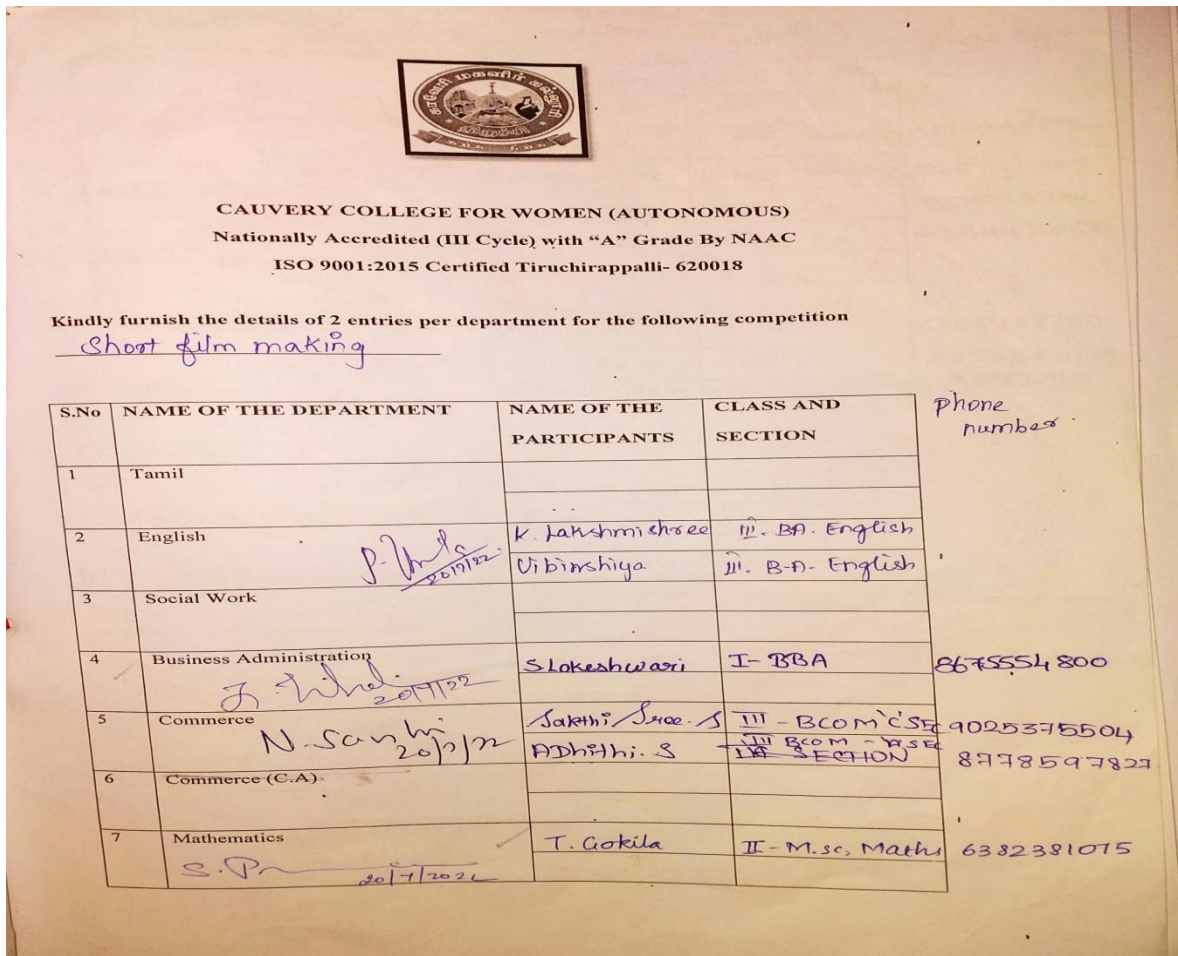 காவேரி மகளிர் கல்லூரி
திருச்சி
CAUVERY COLLEGE FOR WOMEN (AUTONOMOUS)
Nationally Accredited (III Cycle) with “A” Grade By NAAC
ISO 9001:2015 Certified Tiruchirappalli- 620018
Kindly furnish the details of 2 entries per department for the following competition
Short film making
S.No NAME OF THE DEPARTMENT NAME OF THE PARTICIPANTS CLASS AND SECTION Phone number
1 Tamil
2 English 20/7/22 K. Lakshmishree III. BA. English
Vibinshiya III. B-A- English
3 Social Work
4 Business Administration 20/7/22 S Lokeshwari I- BBA 8675554800
5 Commerce 20/7/22 Sakthi Sree. S III - BCOM 'C' SEC 9025375504
ADhithi. S III BCOM - SEC SECTION 8778597827
6 Commerce (C.A)
7 Mathematics 20/7/2022 T. Gokila II - M.sc, Maths 6382381075